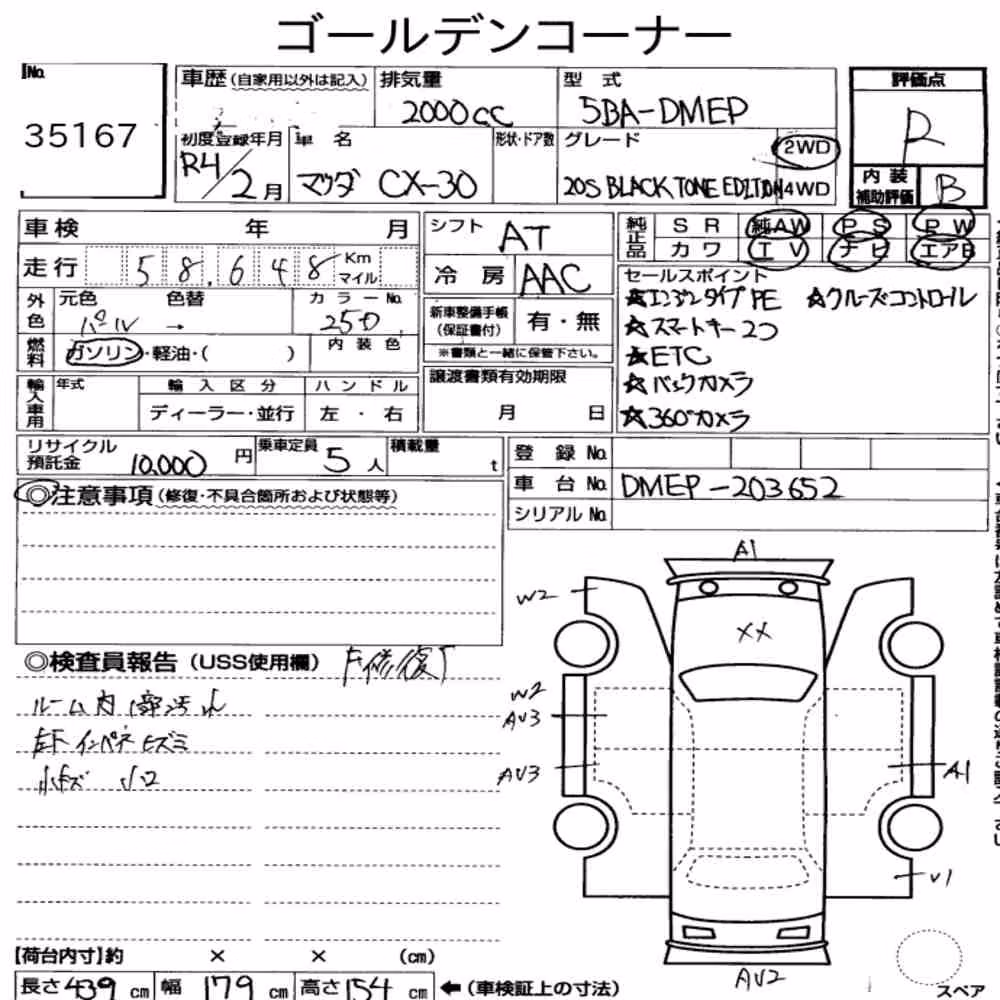 ゴールデンコーナー
No.
35167
車歴(自家用以外は記入)
排気量
2000cc
型 式
5BA-DMEP
評価点
R
初度登録年月
R4/2月
車 名
マツダ CX-30
形状・ドア数
グレード
20S BLACK TONE EDITION
2WD
4WD
内 装
補助評価
B
車検 年 月
シフト
AT
純正品
S R 純AW P S P W
カ ワ I V ナ ビ エアB
走行 58,648 Km
マイル
冷 房 AAC
セールスポイント
☆エンジンタイプPE ☆クルーズコントロール
☆スマートキー2つ
☆ETC
☆バックカメラ
☆360°カメラ
外色
元色 色替 カラーNo.
パール → 25D
新車整備手帳
(保証書付)
有・無
※書類と一緒に保管下さい。
燃料
ガソリン・軽油・( )
内 装 色
輸入車用
年式
輸 入 区 分
ハ ン ド ル
ディーラー・並行
左 ・ 右
譲渡書類有効期限
月 日
リサイクル
預託金
10,000円
乗車定員
5人
積載量
t
登 録 No.
車 台 No. DMEP-203652
シリアル No.
◎注意事項(修復・不具合箇所および状態等)
◎検査員報告(USS使用欄)
ルーム内部汚れ
インパネ
A1
W2
XX
W2
AV3
AV3
A1
V1
AV2
【荷台内寸】約 × × (cm)
長さ439cm 幅179cm 高さ154cm ←(車検証上の寸法)
スペア